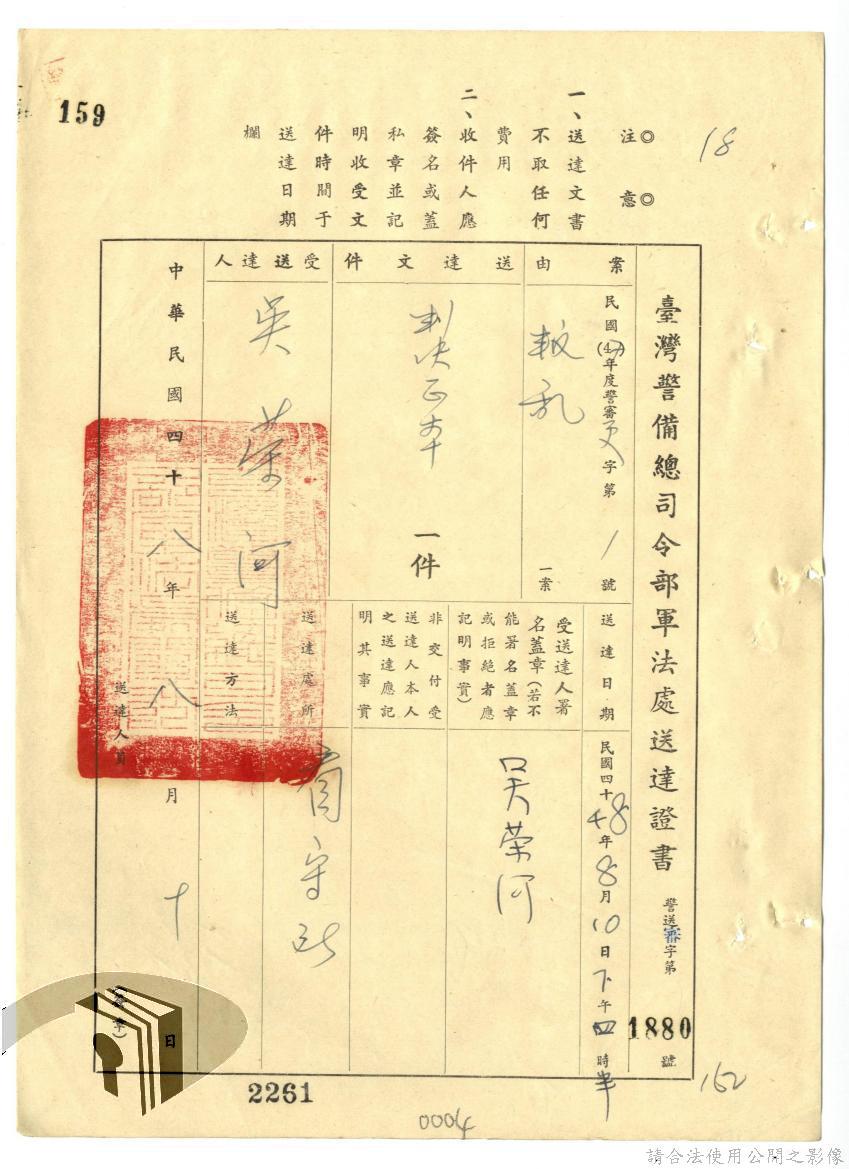 159
18
◎注意◎
一、送達文書
不取任何
費用
二、收件人應
簽名或蓋
私章並記
明收受文
件時間于
送達日期
欄
臺灣警備總司令部軍法處送達證書 警送審字第1880號
案由
民國(47)年度警審更字第1號
叛乱
一案
送達文件
判决正本
一件
受送達人
吳荣河
送達日期
民國四十48年8月10日下午四時半
受送達人署
名蓋章(若不
能署名蓋章
或拒絶者應
記明事實)
吴荣河
非交付受
送達人本人
之送達應記
明其事實
送達處所
看守所
送達方法
中華民國四十八年八月十日
送達人員
章)
2261
0004
162
請合法使用公開之影像